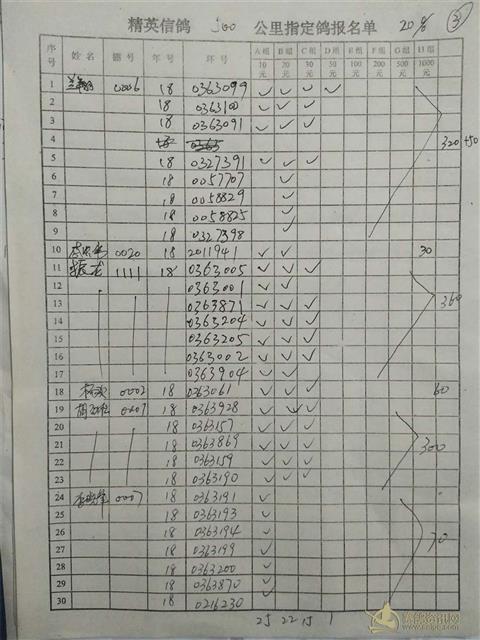 精英信鸽 500 公里指定鸽报名单 20% ③
序号 姓名 棚号 年号 环号 A组10元 B组20元 C组30元 D组50元 E组100元 F组200元 G组500元 H组1000元
1 0006 18 0363099 ✓ ✓ ✓ ✓
2 18 0363100 ✓ ✓ ✓
3 18 0363091 ✓ ✓ ✓
4 320 +50
5 18 0327391 ✓ ✓ ✓
6 18 0057707 ✓
7 18 0058829 ✓
8 18 0058825 ✓
9 18 0327398 ✓
10 0020 18 2011941 ✓ ✓ 30
11 1111 18 0363005 ✓ ✓ ✓
12 0363001 ✓ ✓
13 0363871 ✓ ✓ ✓ 360
14 0363204 ✓ ✓ ✓
15 0363205 ✓ ✓ ✓
16 0363002 ✓ ✓ ✓
17 0363904 ✓ ✓ ✓
18 0002 18 0363061 ✓ ✓ ✓ 60
19 18 0363928 ✓ ✓ ✓
20 18 0363157 ✓ ✓ ✓
21 18 0363869 ✓ ✓ ✓ 300
22 18 0363159 ✓ ✓ ✓
23 18 0363190 ✓ ✓ ✓
24 0007 18 0363191 ✓
25 18 0363193 ✓
26 18 0363194 ✓
27 18 0363199 ✓ 70
28 18 0363200 ✓
29 18 0363870 ✓
30 18 0216230 ✓
25 22 15 1